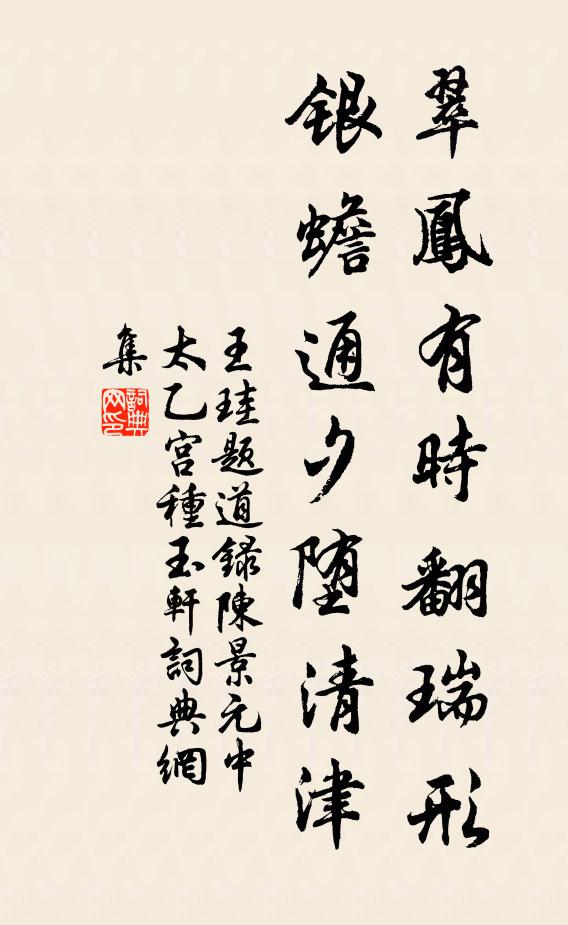 翠鳳有時翻瑞形
銀蟾通夕墮清津
王珪题道録陳景元中
太乙宫種玉軒詞典網
集
詞典
网印